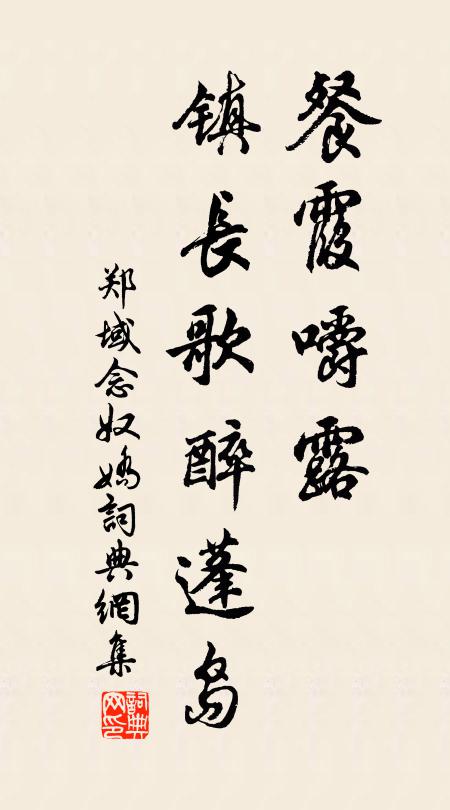 餐霞嚼露
镇長歌醉蓬岛
郑域念奴嬌詞典網集
詞典网印